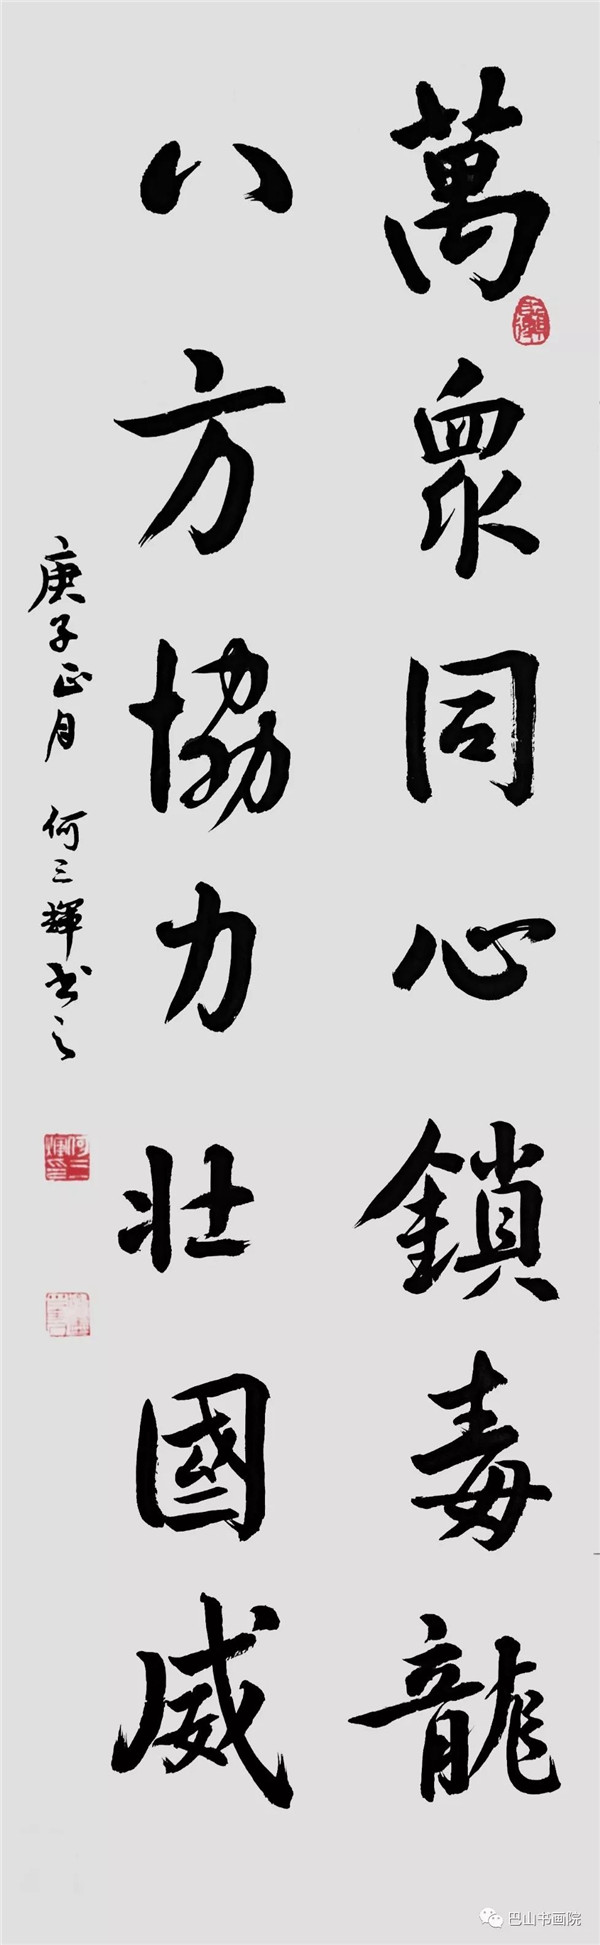 萬眾同心鎖毒龍
八方協力壯國威
庚子正月 何三輝書之
巴山书画院